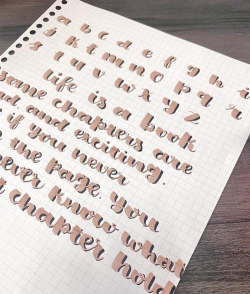 a b c d e f g h i
j k l m n o p q r
s t u v w x y z
life is a book
some chapters are
sad and exciting.
if you never
the page, you
never know what
chapter hold